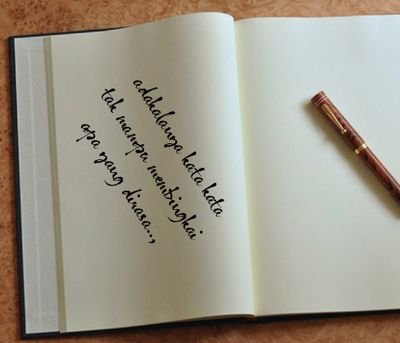 adakalanya kata kata
tak mampu membingkai
apa yang dirasa..,